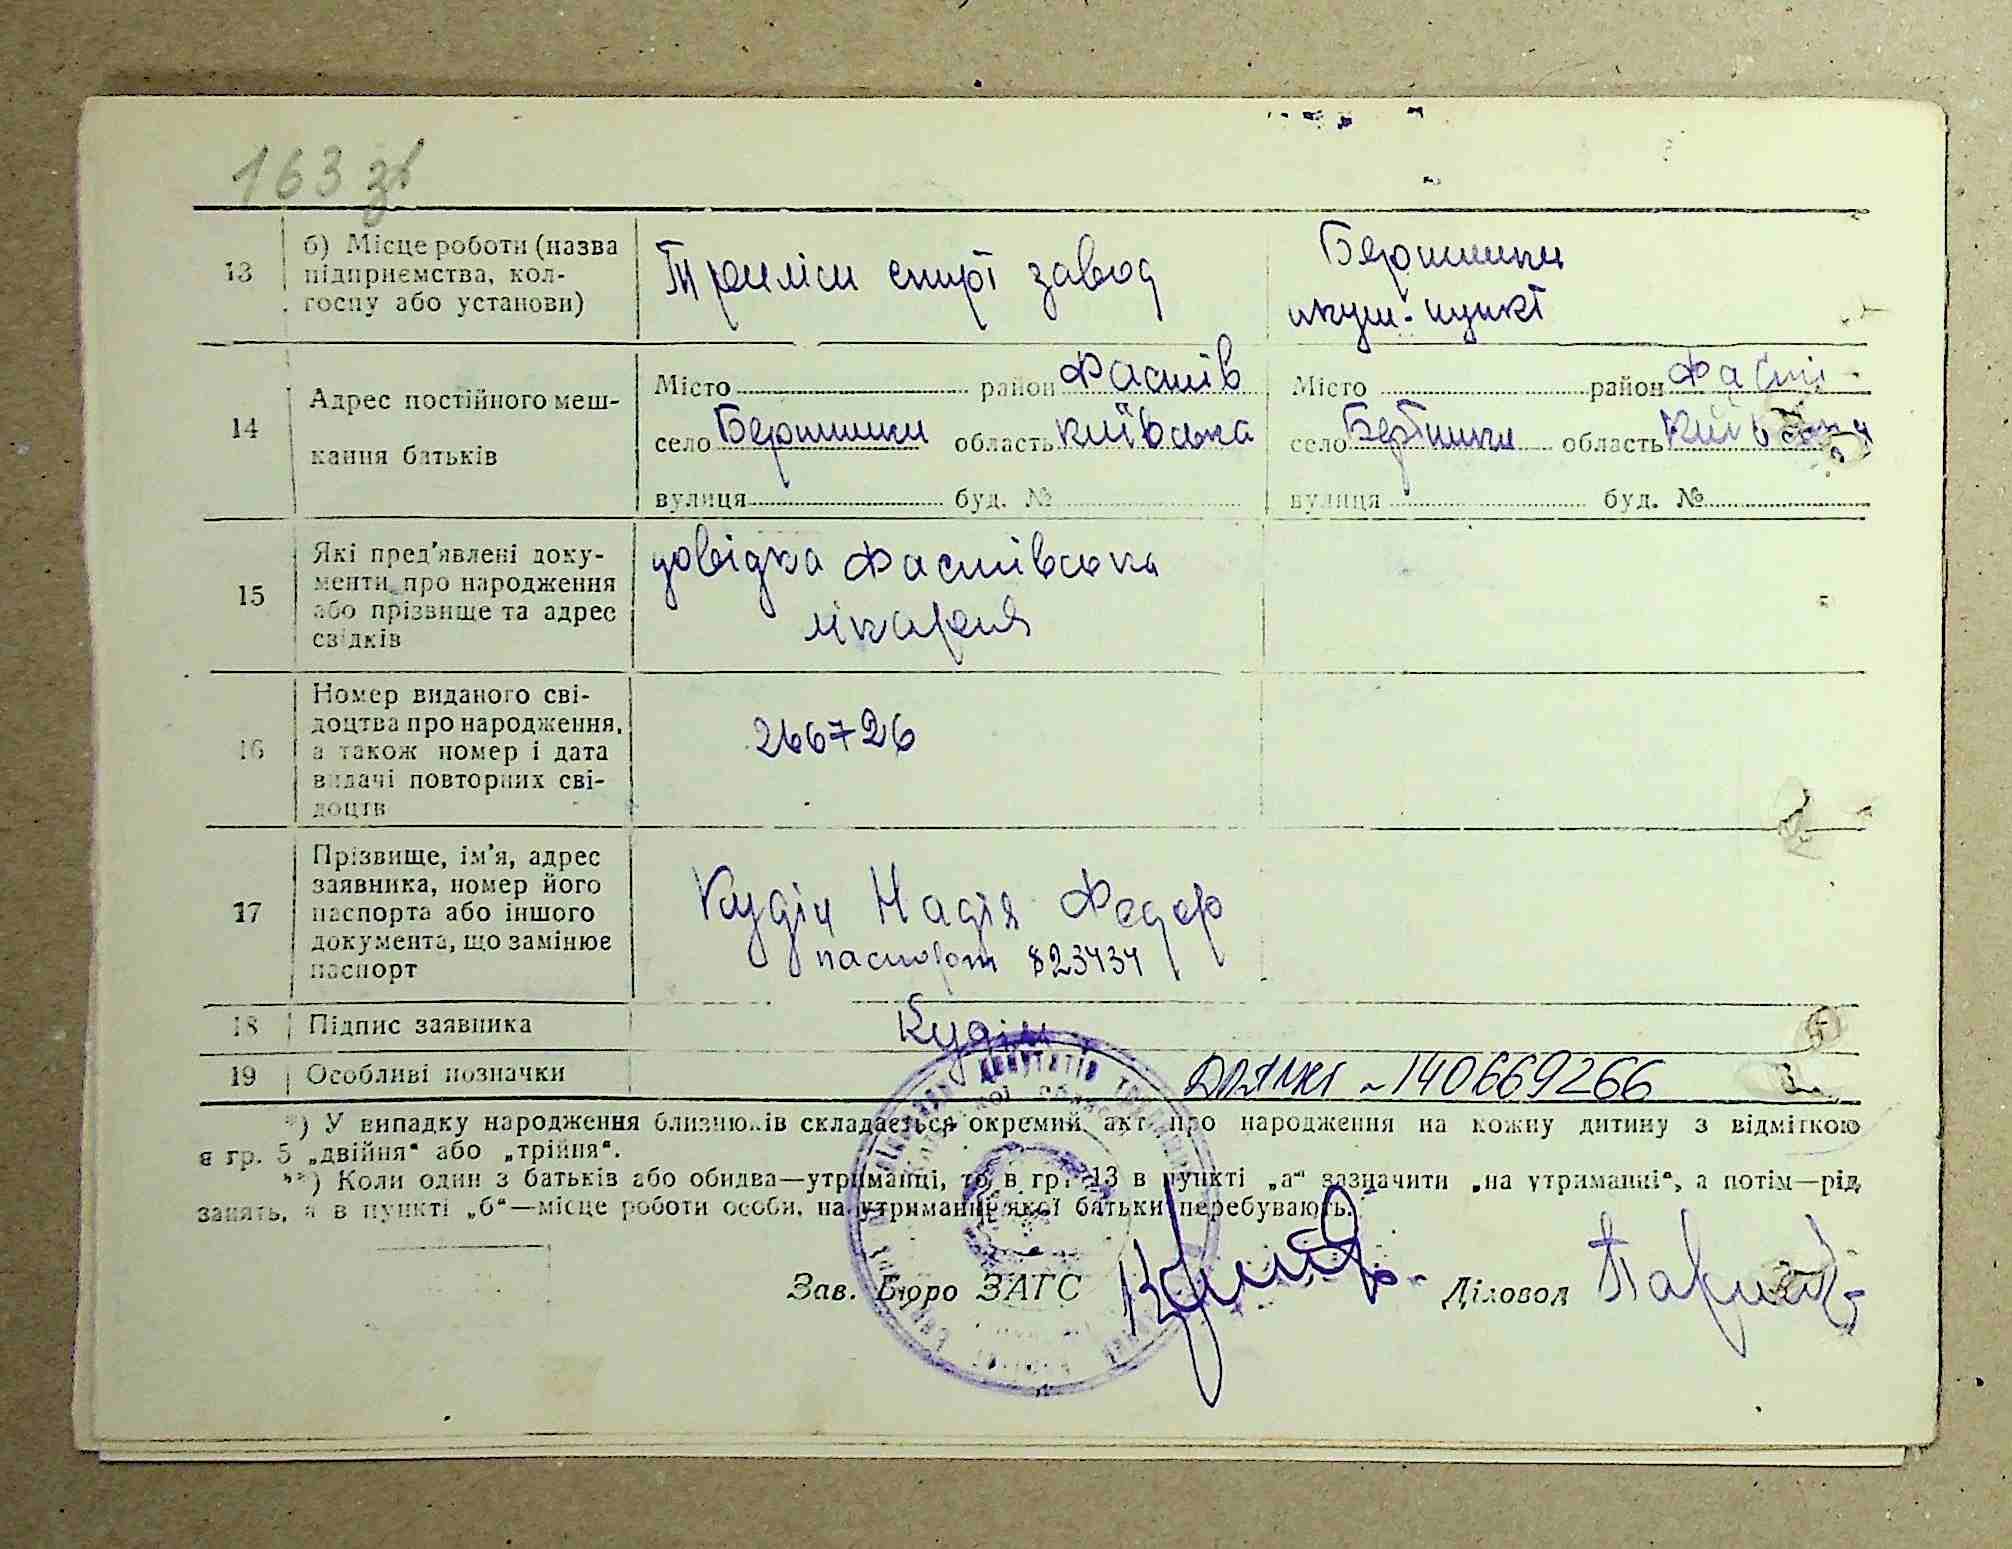 163 зв
13 б) Місце роботи (назва підприємства, колгоспу або установи)
Триліси спирт завод
Бертники
акуш. пункт
14 Адрес постійного мешкання батьків
Місто район Фастів
село Бертники область Київська
вулиця буд. №
Місто район Фасті
село Бертники область Київська
вулиця буд. №
15 Які пред'явлені документи про народження або прізвище та адрес свідків
довідка Фастівська
лікарня
16 Номер виданого свідоцтва про народження, а також номер і дата видачі повторних свідоцтв
266726
17 Прізвище, ім'я, адрес заявника, номер його паспорта або іншого документа, що замінює паспорт
Кудін Надія Федор
паспорт 823434
18 Підпис заявника
Кудін
19 Особливі позначки
ДРАЦСГ ~140669266
*) У випадку народження близнюків складається окремий акт про народження на кожну дитину з відміткою
в гр. 5 „двійня“ або „трійня“.
**) Коли один з батьків або обидва—утриманці, то в гр. 13 в пункті „а“ зазначити „на утриманні“, а потім—рід
занять, а в пункті „б“—місце роботи особи, на утриманні якої батьки перебувають.
Зав. Бюро ЗАГС
Діловод
депутатів трудящих